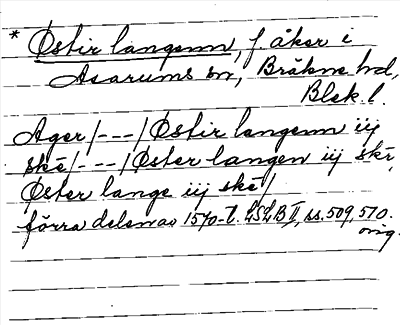 * Østir langenn, f. åker i
Asarums sn, Bräkne hd,
Blek. l.
Ager/---/Østir langenn iij
skē/---/Øster langen iij skē,
Øster lange iij skē/
förra delen av 1570-t. LSLB II, ss. 509, 510.
orig.